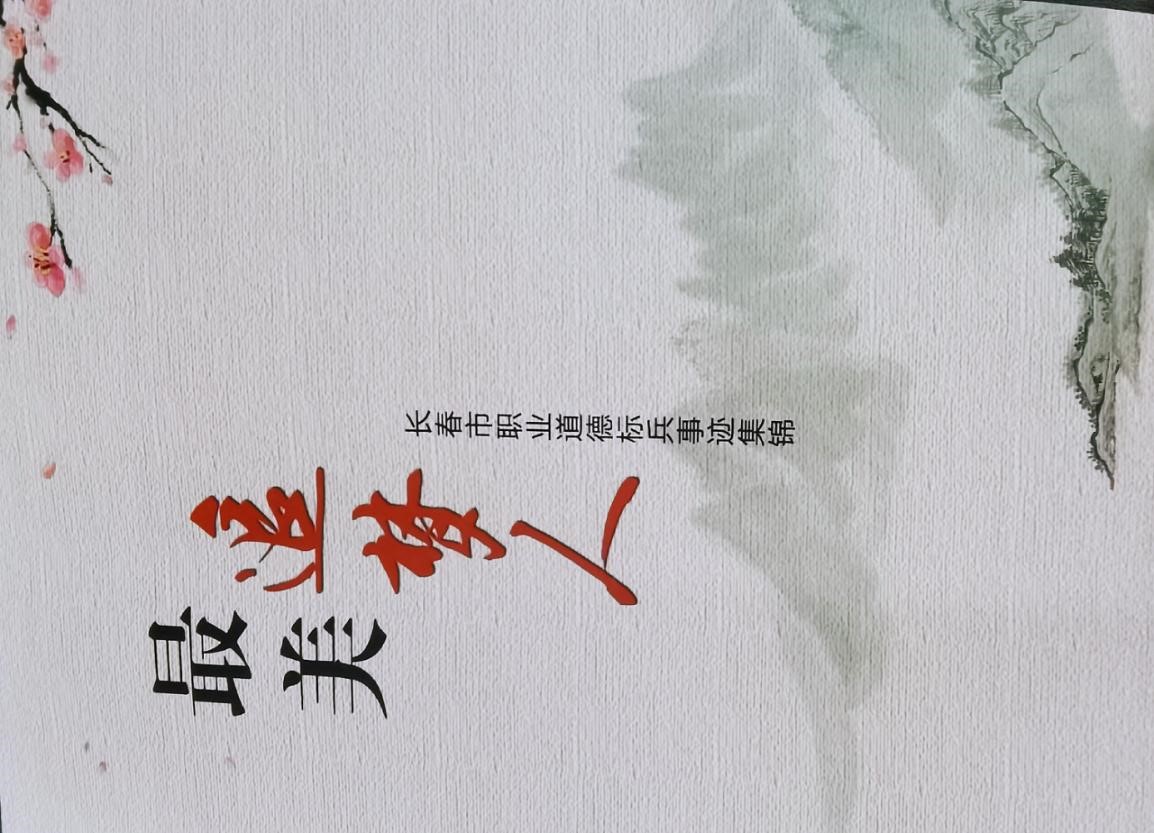 最美
追梦人
长春市职业道德标兵事迹集锦